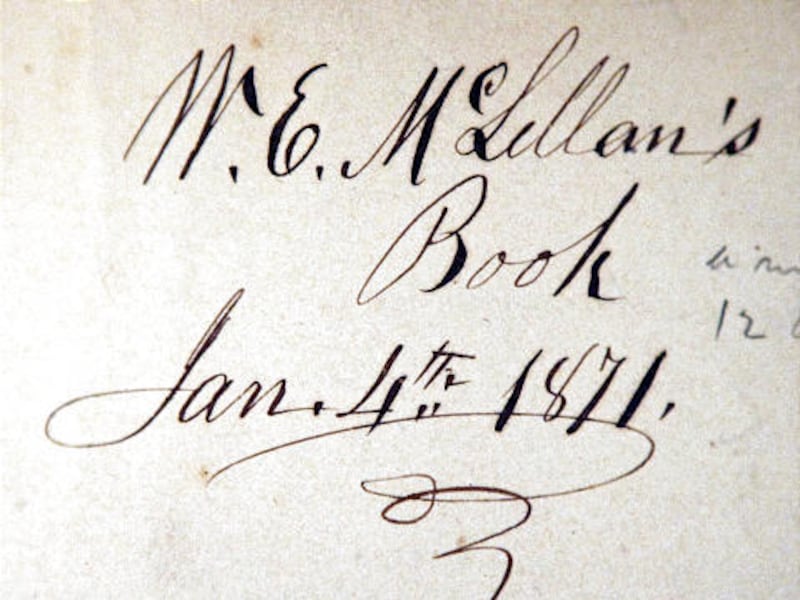 W. E. McLellan's
Book
Jan. 4th. 1871.
12